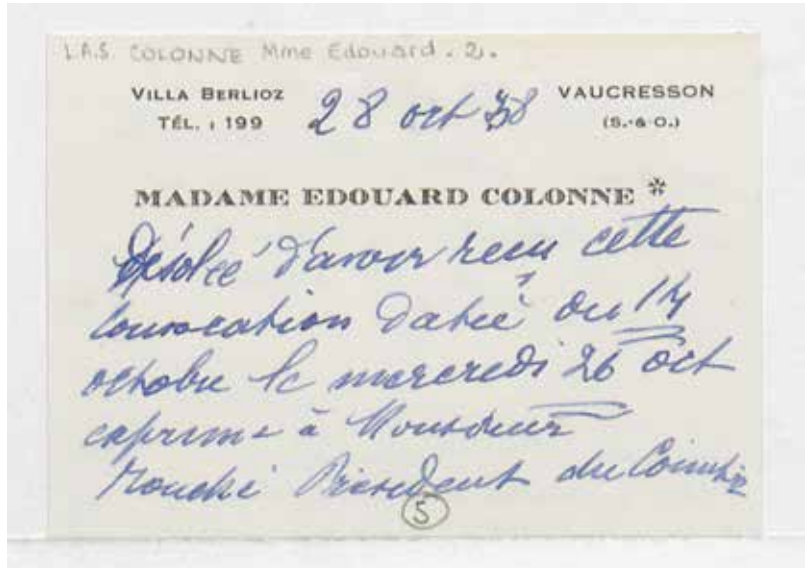 L.A.S. COLONNE Mme Edouard. 2.
VILLA BERLIOZ 28 oct 38 VAUCRESSON
TÉL. : 199 (S.-&-O.)
MADAME EDOUARD COLONNE *
Désolée d'avoir reçu cette
convocation datée du 14
octobre le mercredi 26 oct
exprime à Monsieur
Rouché Président du Comité
5